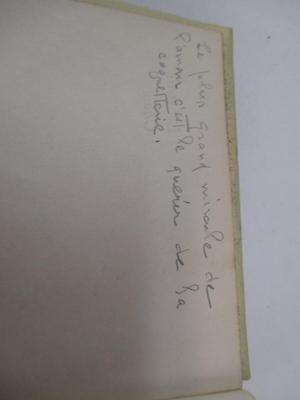 Le plus grand miracle de
l'amour c'est le guérir de la
coquetterie.